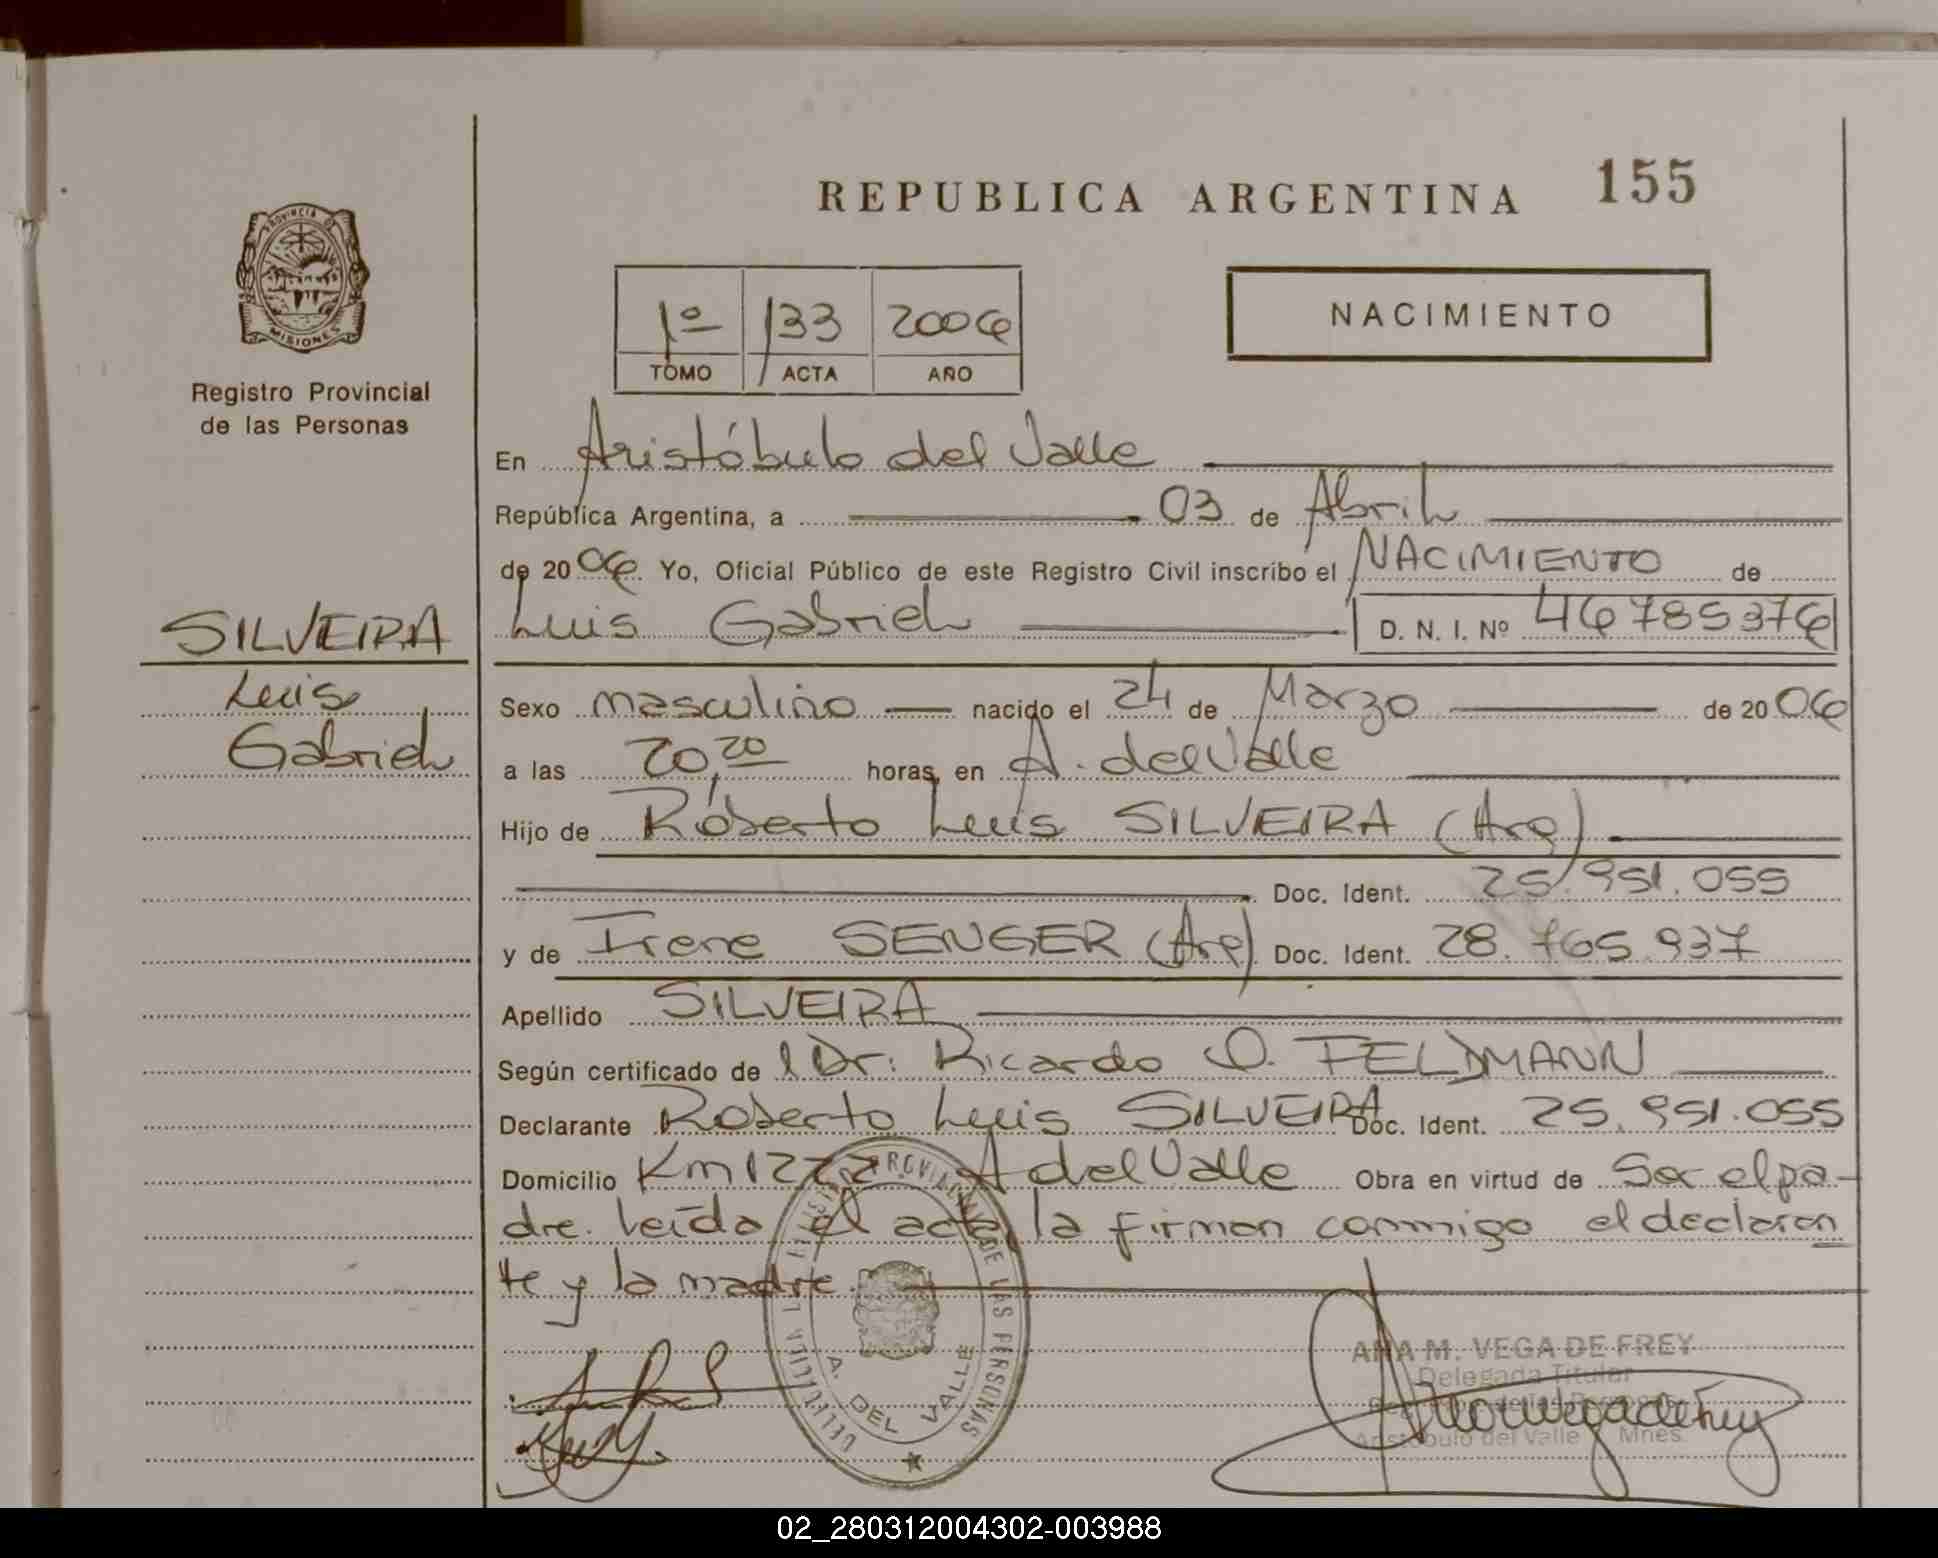 REPUBLICA ARGENTINA 155
PROVINCIA DE
MISIONES
Registro Provincial
de las Personas
1º 133 2006
TOMO ACTA AÑO
NACIMIENTO
En Aristóbulo del Valle
República Argentina, a 03 de Abril
de 2006 Yo, Oficial Público de este Registro Civil inscribo el NACIMIENTO de
Luis Gabriel D. N. I. Nº 46785376
SILVEIRA
Luis
Gabriel
Sexo masculino nacido el 24 de Marzo de 2006
a las 20,20 horas, en A. del Valle
Hijo de Roberto Luis SILVEIRA (Arg)
Doc. Ident. 25.951.055
y de Irene SENGER (Arg) Doc. Ident. 28.765.937
Apellido SILVEIRA
Según certificado de l Dr. Ricardo O. FELDMANN
Declarante Roberto Luis SILVEIRA Doc. Ident. 25.951.055
Domicilio Km 1272 A del Valle Obra en virtud de Ser el pa-
dre. leída el acta, la firman conmigo el declaran
te y la madre.
PROVINCIAL DE LAS PERSONAS
A. DEL VALLE
ANA M. VEGA DE FREY
Delegada Titular
de las Personas
Aristóbulo del Valle Mnes.
02_280312004302-003988